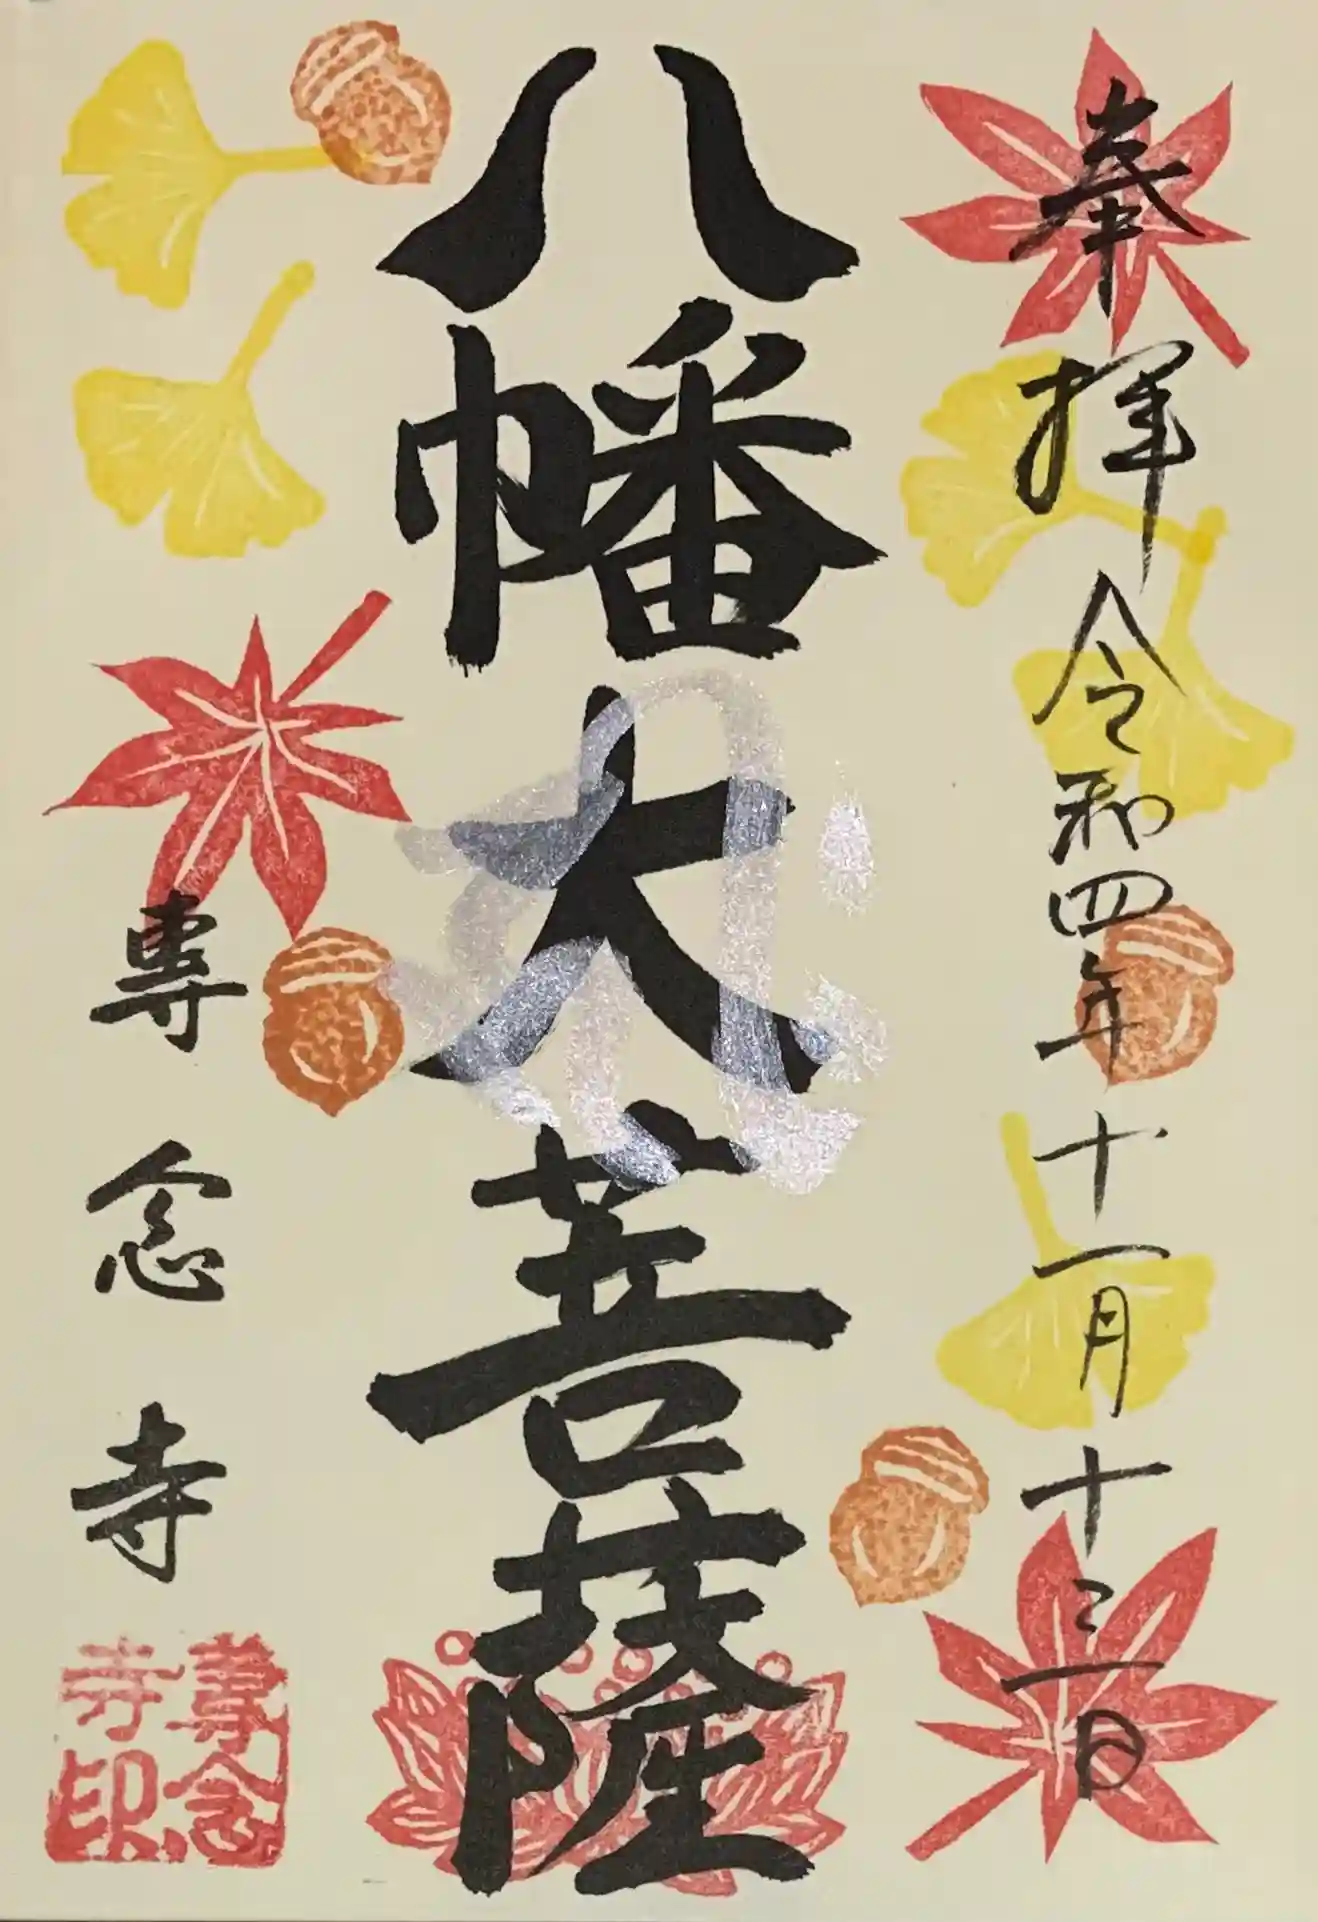 奉拝 令和四年十一月十三日
八幡大菩薩
專念寺
專念寺印